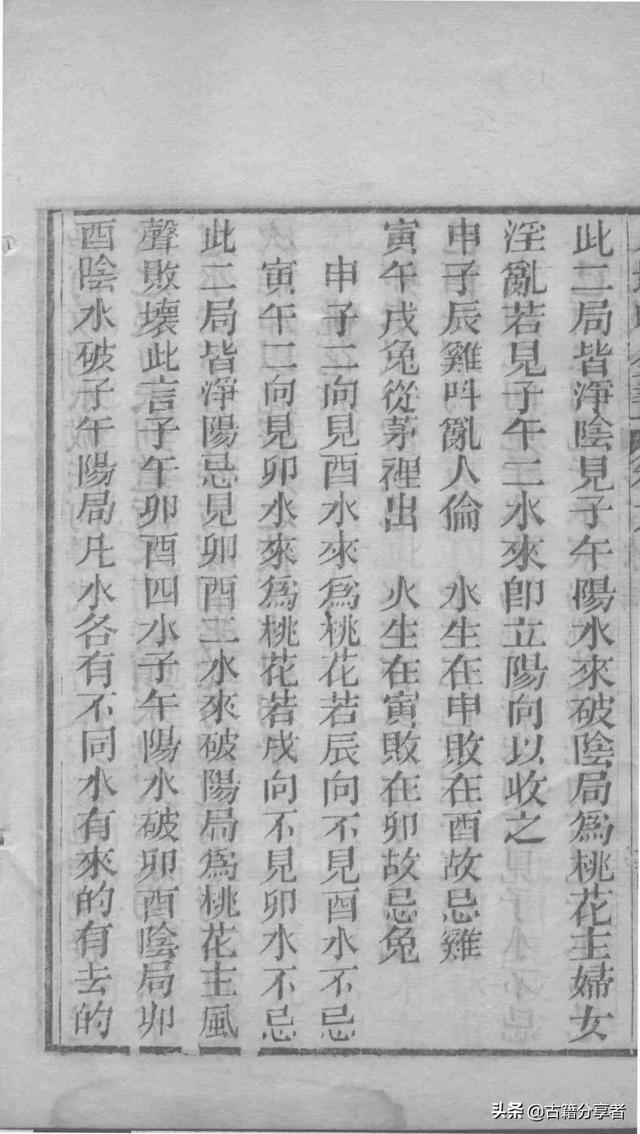 此二局皆淨陰見子午陽水來破陰局爲桃花主婦女
淫亂若見子午二水來卽立陽向以收之
申子辰雞叫亂人倫　水生在申敗在酉故忌雞
寅午戌兔從茅裡出　火生在寅敗在卯故忌兔
申子二向見酉水來爲桃花若辰向不見酉水不忌
寅午二向見卯水來爲桃花若戌向不見卯水不忌
此二局皆淨陽忌見卯酉二水來破陽局爲桃花主風
聲敗壞此言子午卯酉四水子午陽水破卯酉陰局卯
酉陰水破子午陽局凡水各有不同水有來的有去的
头条 @古籍分享者